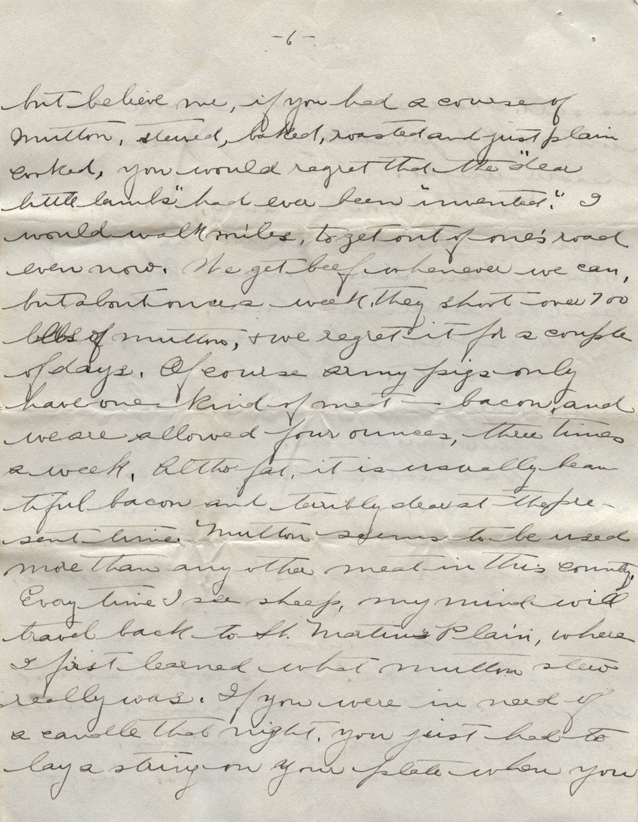 -6-
but believe me, if you had a course of
Mutton, stewed, baked, roasted and just plain
cooked, you would regret that the "dear
little lambs" had ever been "invented." I
would walk miles, to get out of one's road
even now. We get beef whenever we can,
but about once a week, they shoot over 700
lbs of mutton, & we regret it for a couple
of days. Of course army pigs only
have one kind of meat - bacon, and
we are allowed four ounces, three times
a week. Altho fat, it is usually beau
tiful bacon and terribly dear at the pre-
sent time. Mutton seems to be used
more than any other meat in this country.
Every time I see sheep, my mind will
travel back to St. Martins Plain, where
I first learned what mutton stew
really was. If you were in need of
a candle that night, you just had to
lay a string on your plate when you